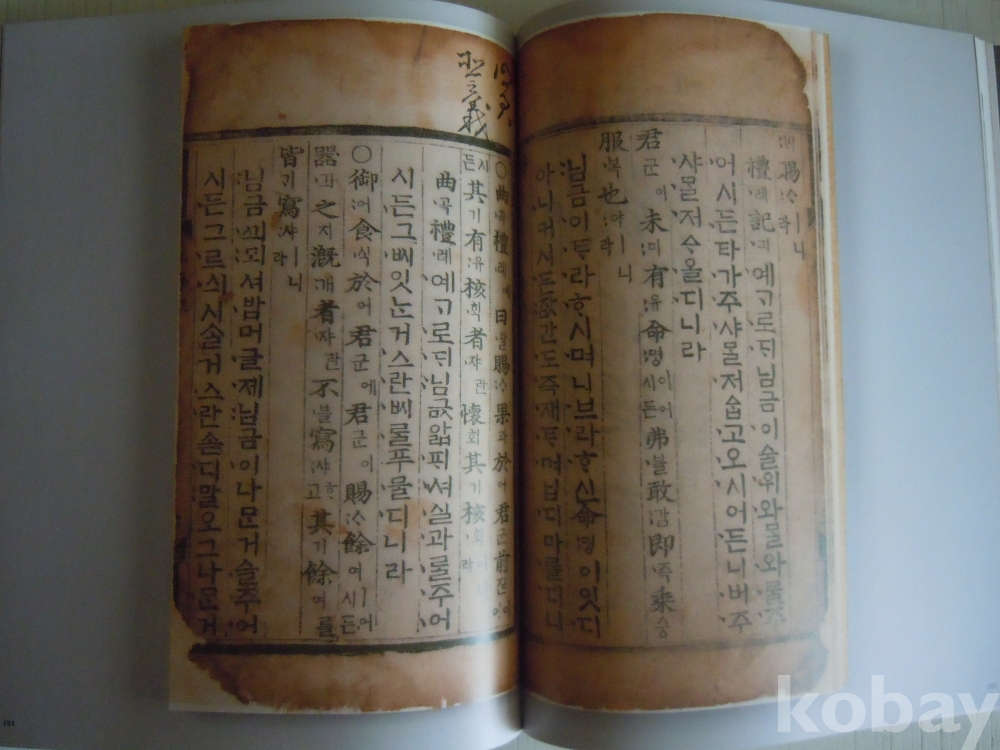 賜ᄉᆞㅣ니라
禮례記긔예ᄀᆞ로ᄃᆡ님금이술위와ᄆᆞᆯ와ᄅᆞᆯ주
어시든타가주샤ᄆᆞᆯ저ᄉᆞᆸ고오시어든니버주
샤ᄆᆞᆯ저ᄉᆞ올디니라
君군이未미有유命명이어시든弗블敢감即즉乘승
服복也야ㅣ니라
님금이ᄐᆞ라ᄒᆞ시며니브라ᄒᆞ신命명이잇디
아니커시든잠간도즉재ᄐᆞ며닙디마롤디니
○曲곡禮례예曰왈賜ᄉᆞ果과於어君군前젼이어
시든其기有유核획者쟈란懷회其기核획이니라
曲곡禮례예ᄀᆞ로ᄃᆡ님금앏ᄑᆡ셔실과ᄅᆞᆯ주어
시든그ᄡᅵ잇ᄂᆞᆫ거스란ᄡᅵᄅᆞᆯ푸믈디니라
○御어食식於어君군에君군이賜ᄉᆞ餘여ㅣ어시든
器긔之지漑개者쟈란不블寫샤ᄒᆞ고其기餘여를
皆ᄀᆡ寫샤ㅣ니라
님금ᄭᅴ뫼셔밥머글제님금이나ᄆᆞᆫ거슬주어
시든그르시시솔거스란솓디말오그나ᄆᆞᆫ거
kobay